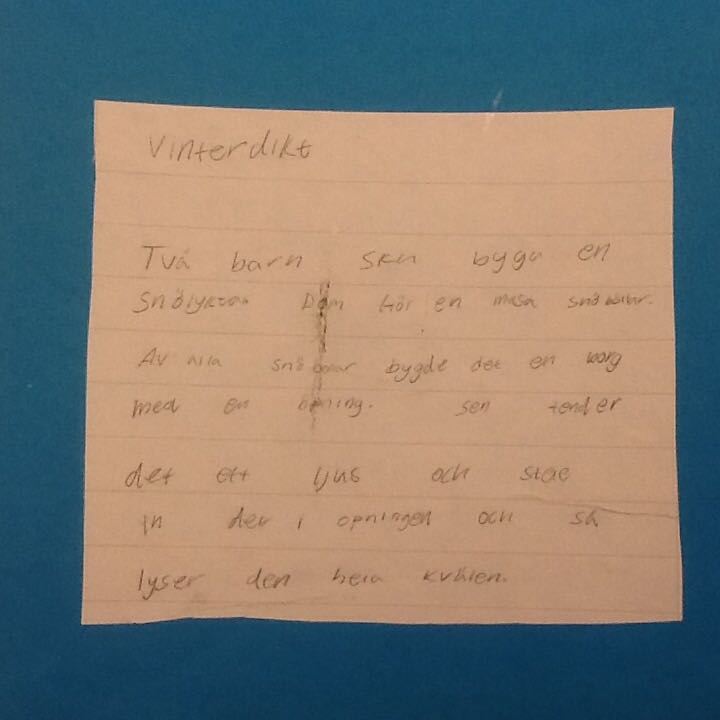 Vinterdikt
Två barn ska bygga en
snölyktan Dom gör en masa snöbollar.
Av alla snöbollar bygde det en borg
med en öpning. sen tender
det ett ljus och stae
in der i öpningen och så
lyser den hela kvälen.